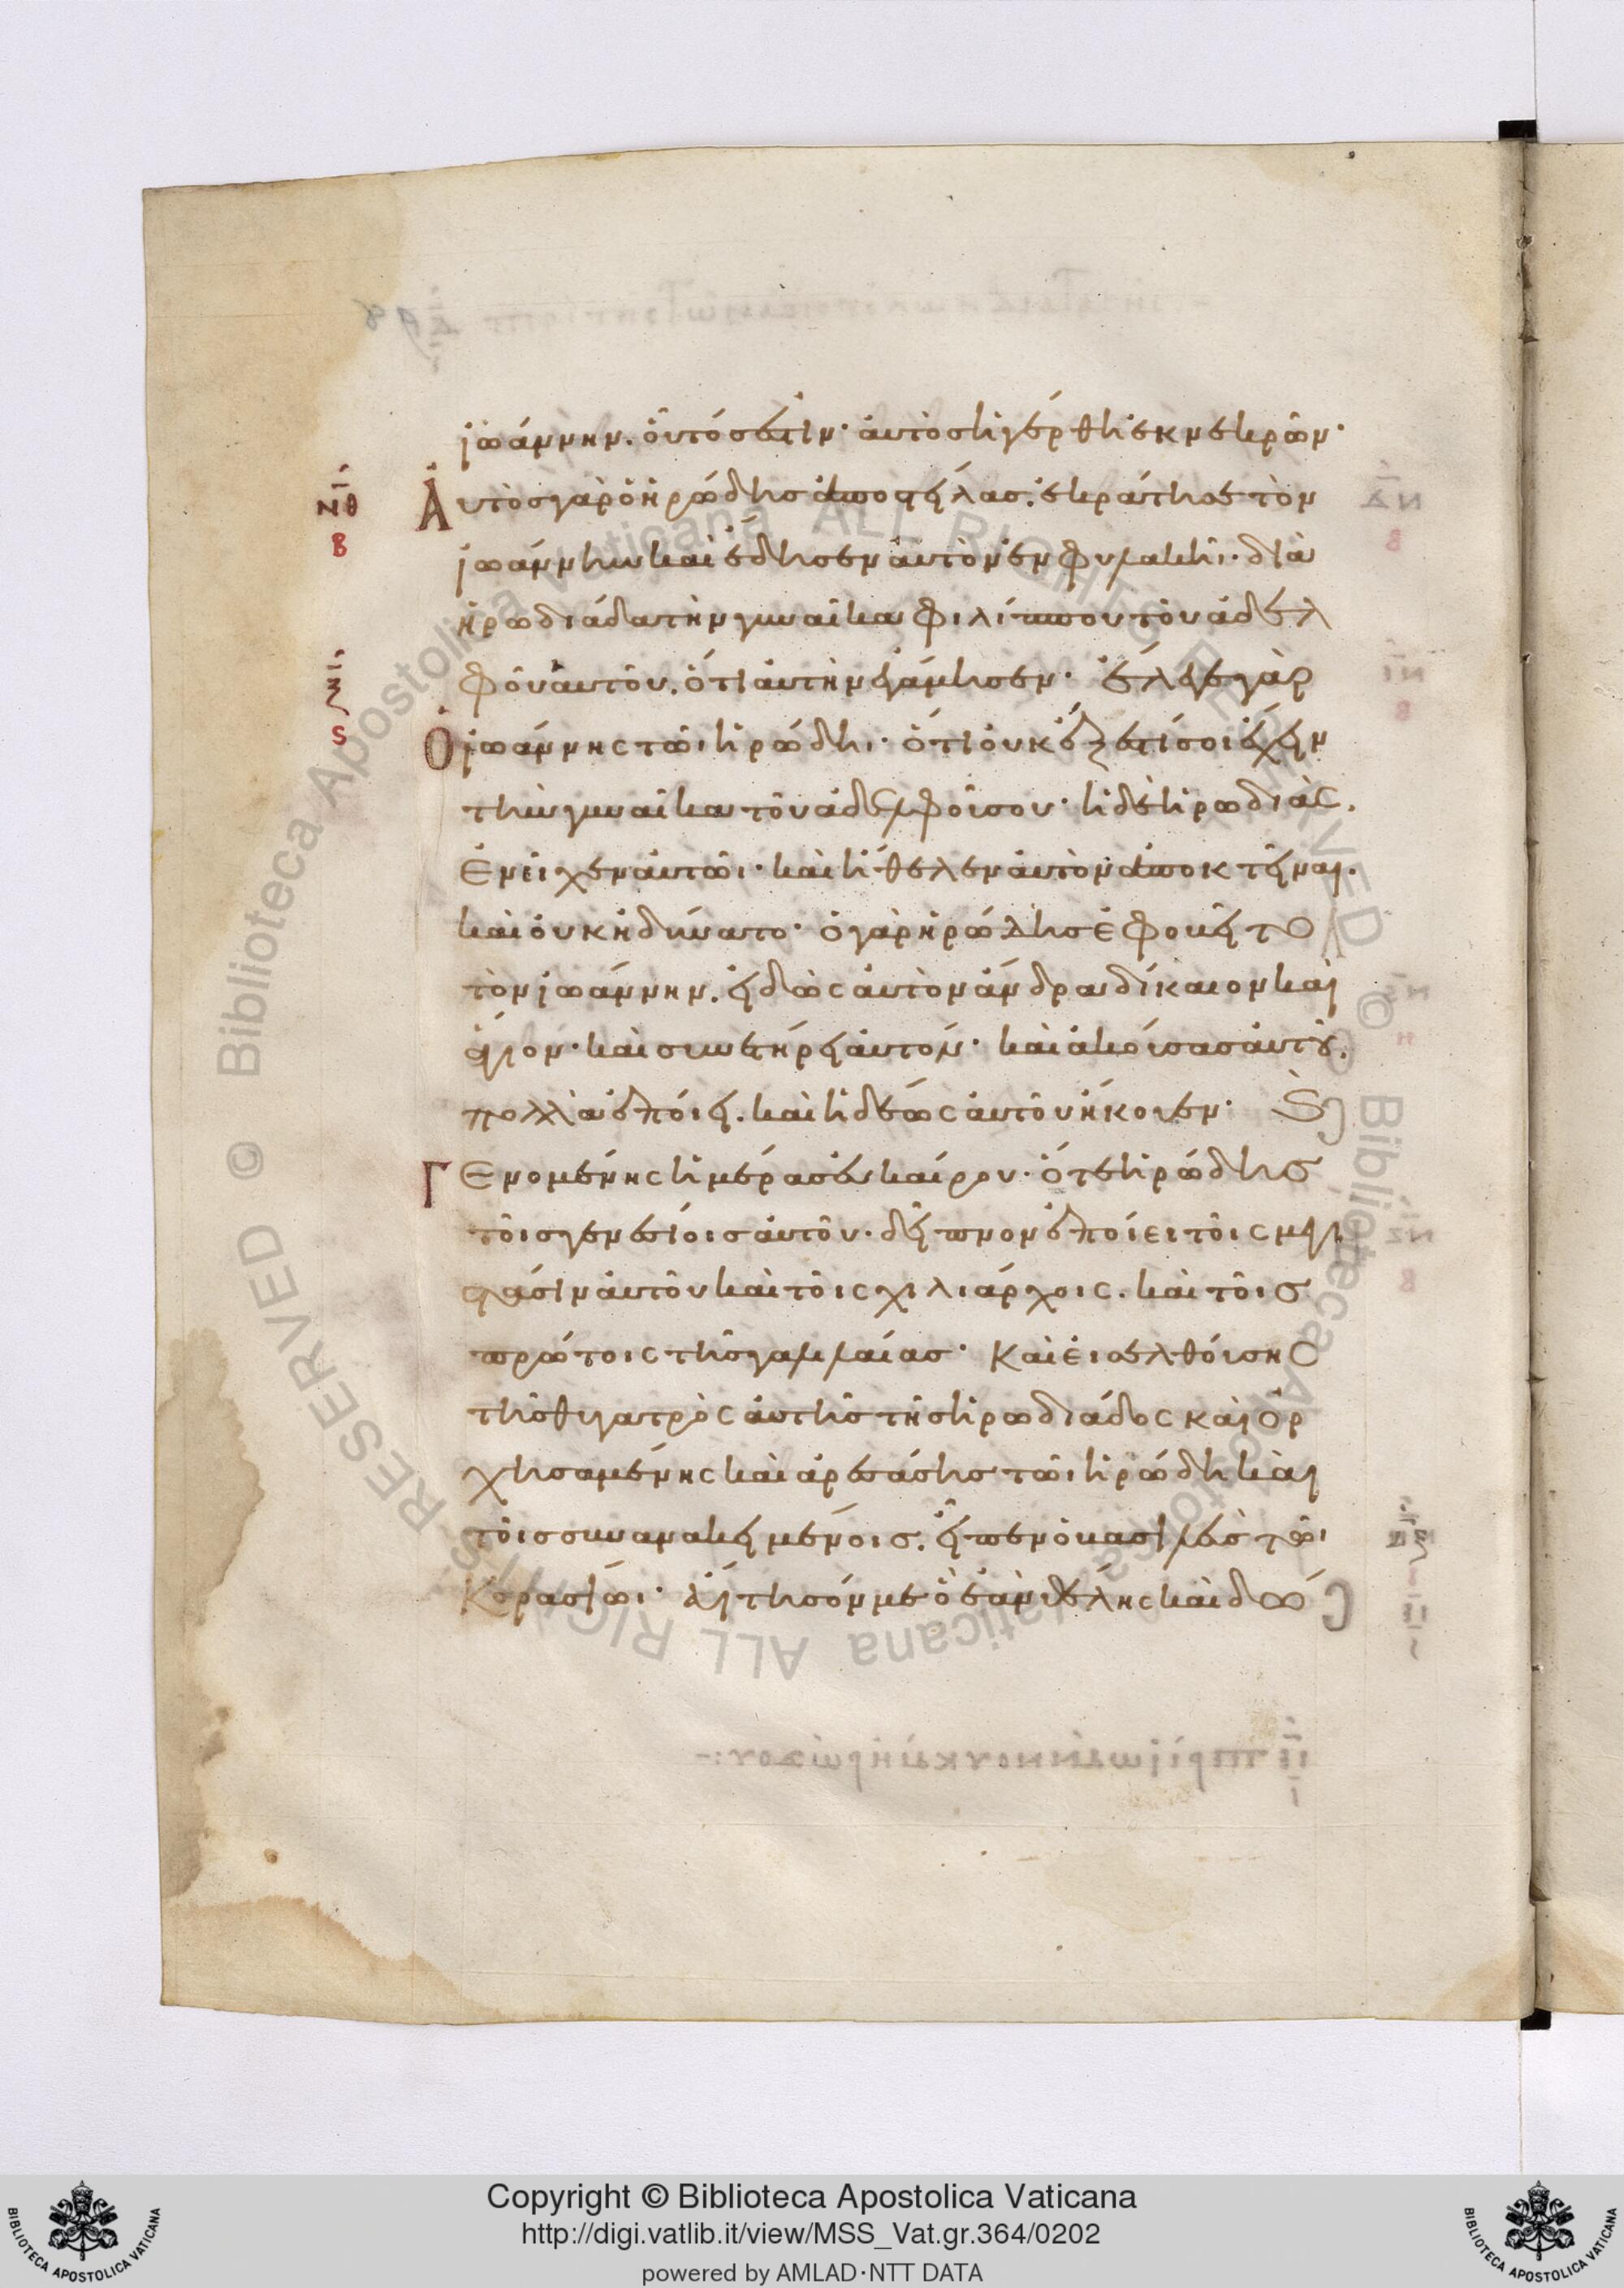 ἰωάννην. οὗτός ἐστιν· αὐτὸς ἠγέρθη ἐκ νεκρῶν·
ΝΘ Β Αὐτὸς γὰρ ὁ ἡρώδης ἀποστείλας. ἐκράτησε τὸν
ἰωάννην καὶ ἔδησεν αὐτὸν ἐν φυλακῆι· διὰ
ἡρωδιάδα τὴν γυναῖκα φιλίππου τοῦ ἀδελ
φοῦ αὐτοῦ. ὅτι αὐτὴν ἐγάμησεν· ἔλεγε γὰρ
Ξ Ϛ Ὁ ἰωάννης τῶι ἡρώδηι· ὅτι οὐκ ἔξεστί σοι ἔχειν
τὴν γυναῖκα τοῦ ἀδελφοῦ σου· ἡ δὲ ἡρωδιὰς.
Ἐνεῖχεν αὐτῶι· καὶ ἤθελεν αὐτὸν ἀποκτεῖναι.
καὶ οὐκ ἠδύνατο· ὁ γὰρ ἡρώδης ἐφοβεῖτο
τὸν ἰωάννην. εἰδὼς αὐτὸν ἄνδρα δίκαιον καὶ
ἅγιον· καὶ συνετήρει αὐτόν· καὶ ἀκούσας αὐτοῦ.
πολλὰ ἐποίει. καὶ ἡδέως αὐτοῦ ἤκουεν· Καὶ
Γενομένης ἡμέρας εὐκαίρου· ὅτε ἡρώδης
τοῖς γενεσίοις αὐτοῦ· δεῖπνον ἐποίει τοῖς μεγι
στᾶσιν αὐτοῦ καὶ τοῖς χιλιάρχοις. καὶ τοῖς
πρώτοις τῆς γαλιλαίας· Καὶ εἰσελθούσης
τῆς θυγατρὸς αὐτῆς τῆς ἡρωδιάδος καὶ ὀρ
χησαμένης καὶ ἀρεσάσης τῶι ἡρώδη καὶ
τοῖς συνανακειμένοις. εἶπεν ὁ βασιλεὺς τῶι
Κορασίωι· αἴτησόν με ὃ ἐὰν θέλης καὶ δώ
Copyright © Biblioteca Apostolica Vaticana
http://digi.vatlib.it/view/MSS_Vat.gr.364/0202
powered by AMLAD·NTT DATA